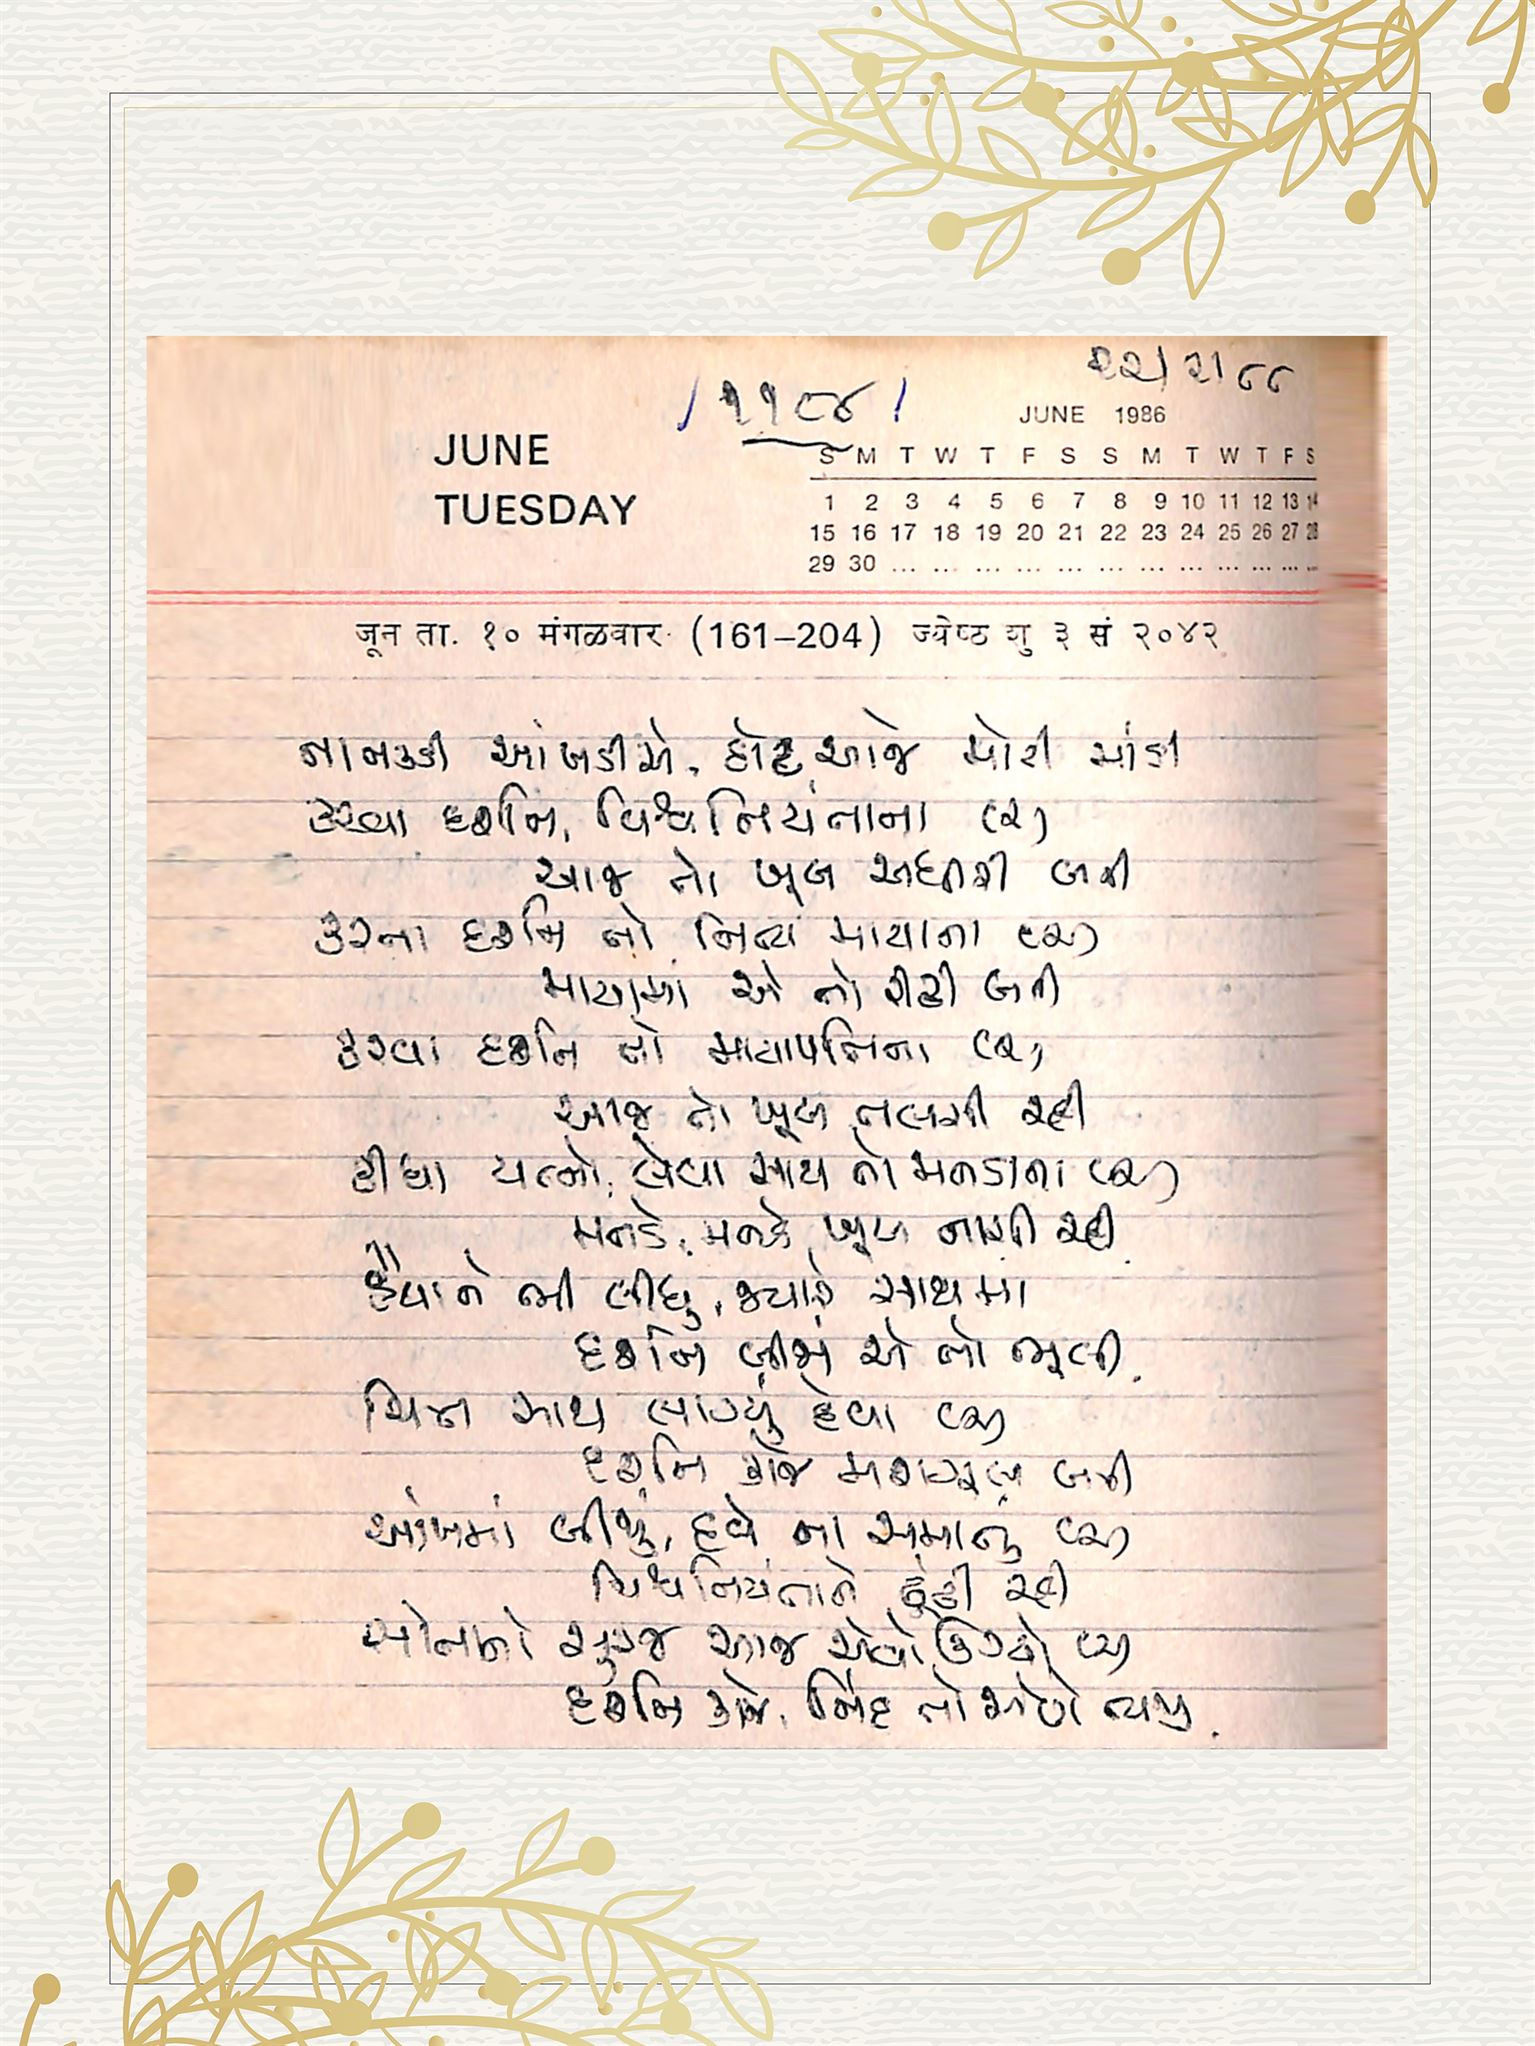 ૨૨/૨/૮૮
/ ૧૧૮૪ /
JUNE 1986
JUNE
TUESDAY
S M T W T F S S M T W T F S
1 2 3 4 5 6 7 8 9 10 11 12 13 14
15 16 17 18 19 20 21 22 23 24 25 26 27 28
29 30 ... ... ... ... ... ... ... ... ... ... ... ...
जून ता. १० मंगळवार (161–204) ज्येष्ठ शु ३ सं २०४२
નાનકડી આંખડીએ, દોટ આજે મોટી માંડી
કરવા દર્શન, વિશ્વનિયંતાના (૨)
આજ તો ખૂબ અધીરી બની
કરતા દર્શન તો નિત્ય માયાના (૨)
માયામાં એ તો રીઢી બની
કરવા દર્શન તો માયાપતિના (૨)
આજ તો ખૂબ તલસી રહી
કીધા યત્નો, લેવા સાથ તો મનડાના (૨)
મનડે, મનડે ખૂબ નાચી રહી
હૈયાને ભી લીધુ, જ્યારે સાથમાં
દર્શન બીજાં એ તો ભૂલી.
ચિત્ત સાથ લાગ્યું દેવા (૨)
દર્શન કાજે મશગૂલ બની
આંખમાં બીજું, હવે ના સમાતું (૨)
વિશ્વનિયંતાને ઢૂંઢી રહી
સોનાનો સુરજ આજ એવો ઉગ્યો (૨)
દર્શન કાજે, નિંદ તો એણે ત્યજી.